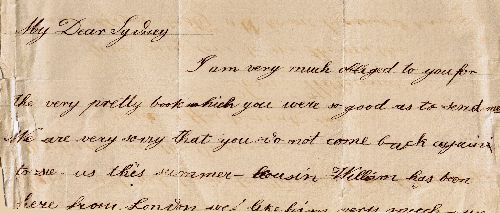 My Dear Sydney
I am very much obliged to you for
the very pretty book which you were so good as to send me
We are very sorry that you do not come back again
to see us this summer - Cousin William has been
here from London we like him very much -